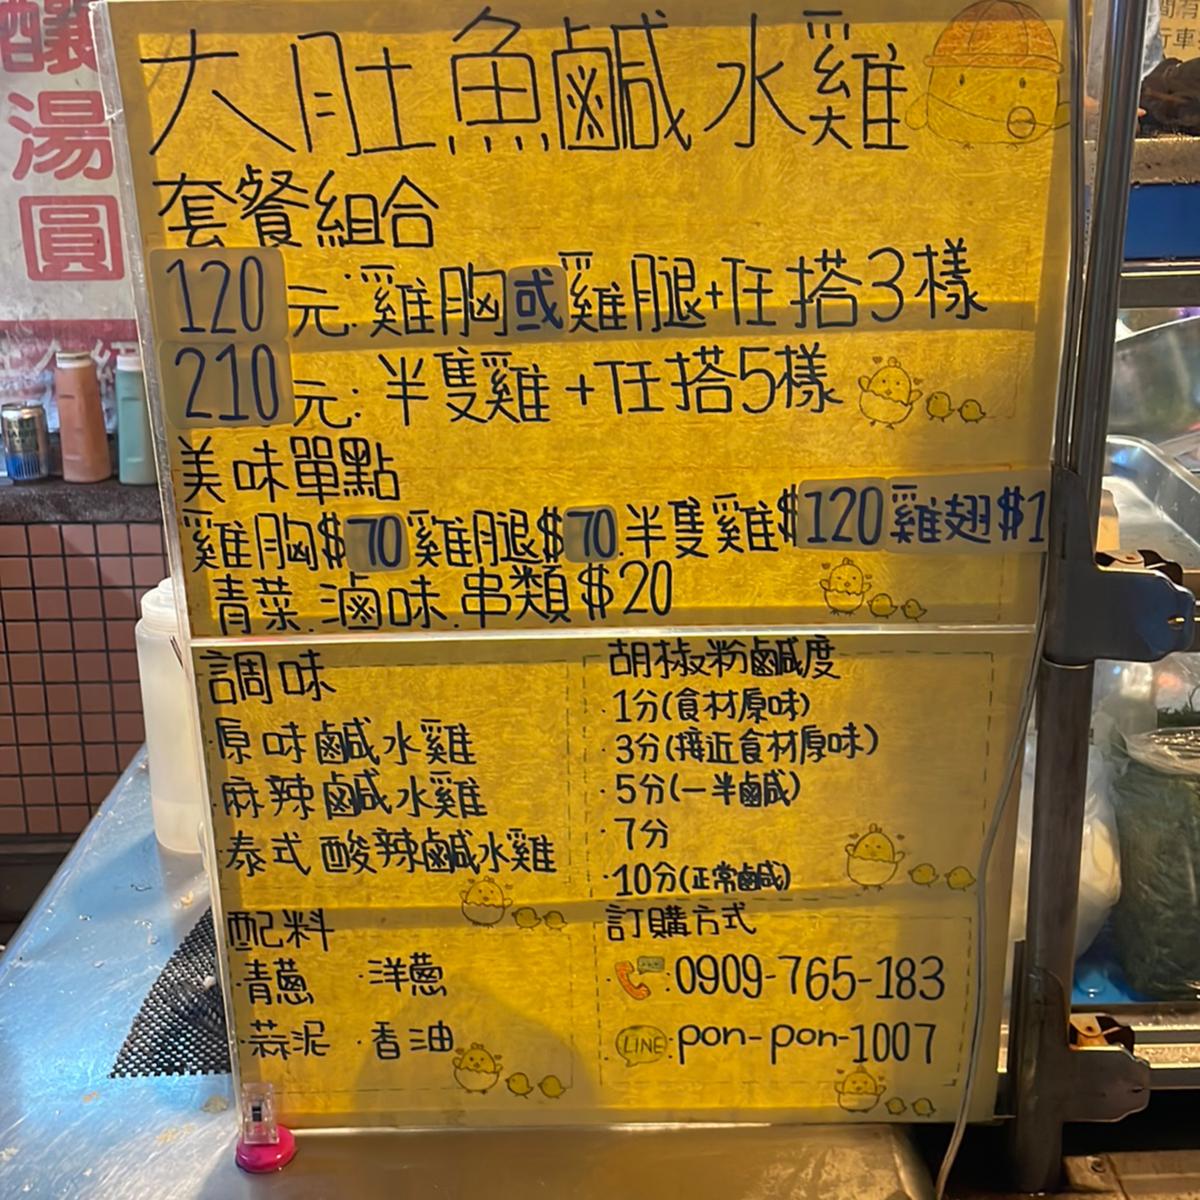 釀
湯
圓
大肚魚鹹水雞
套餐組合
120元:雞胸或雞腿+任搭3樣
210元:半隻雞+任搭5樣
美味單點
雞胸$70雞腿$70.半隻雞$120雞翅$1
青菜.滷味.串類$20
調味
·原味鹹水雞
·麻辣鹹水雞
·泰式酸辣鹹水雞
胡椒粉鹹度
·1分(食材原味)
·3分(接近食材原味)
·5分(一半鹹)
·7分
·10分(正常鹹)
配料
·青蔥 ·洋蔥
·蒜泥 ·香油
訂購方式
·:0909-765-183
·LINE:pon-pon-1007